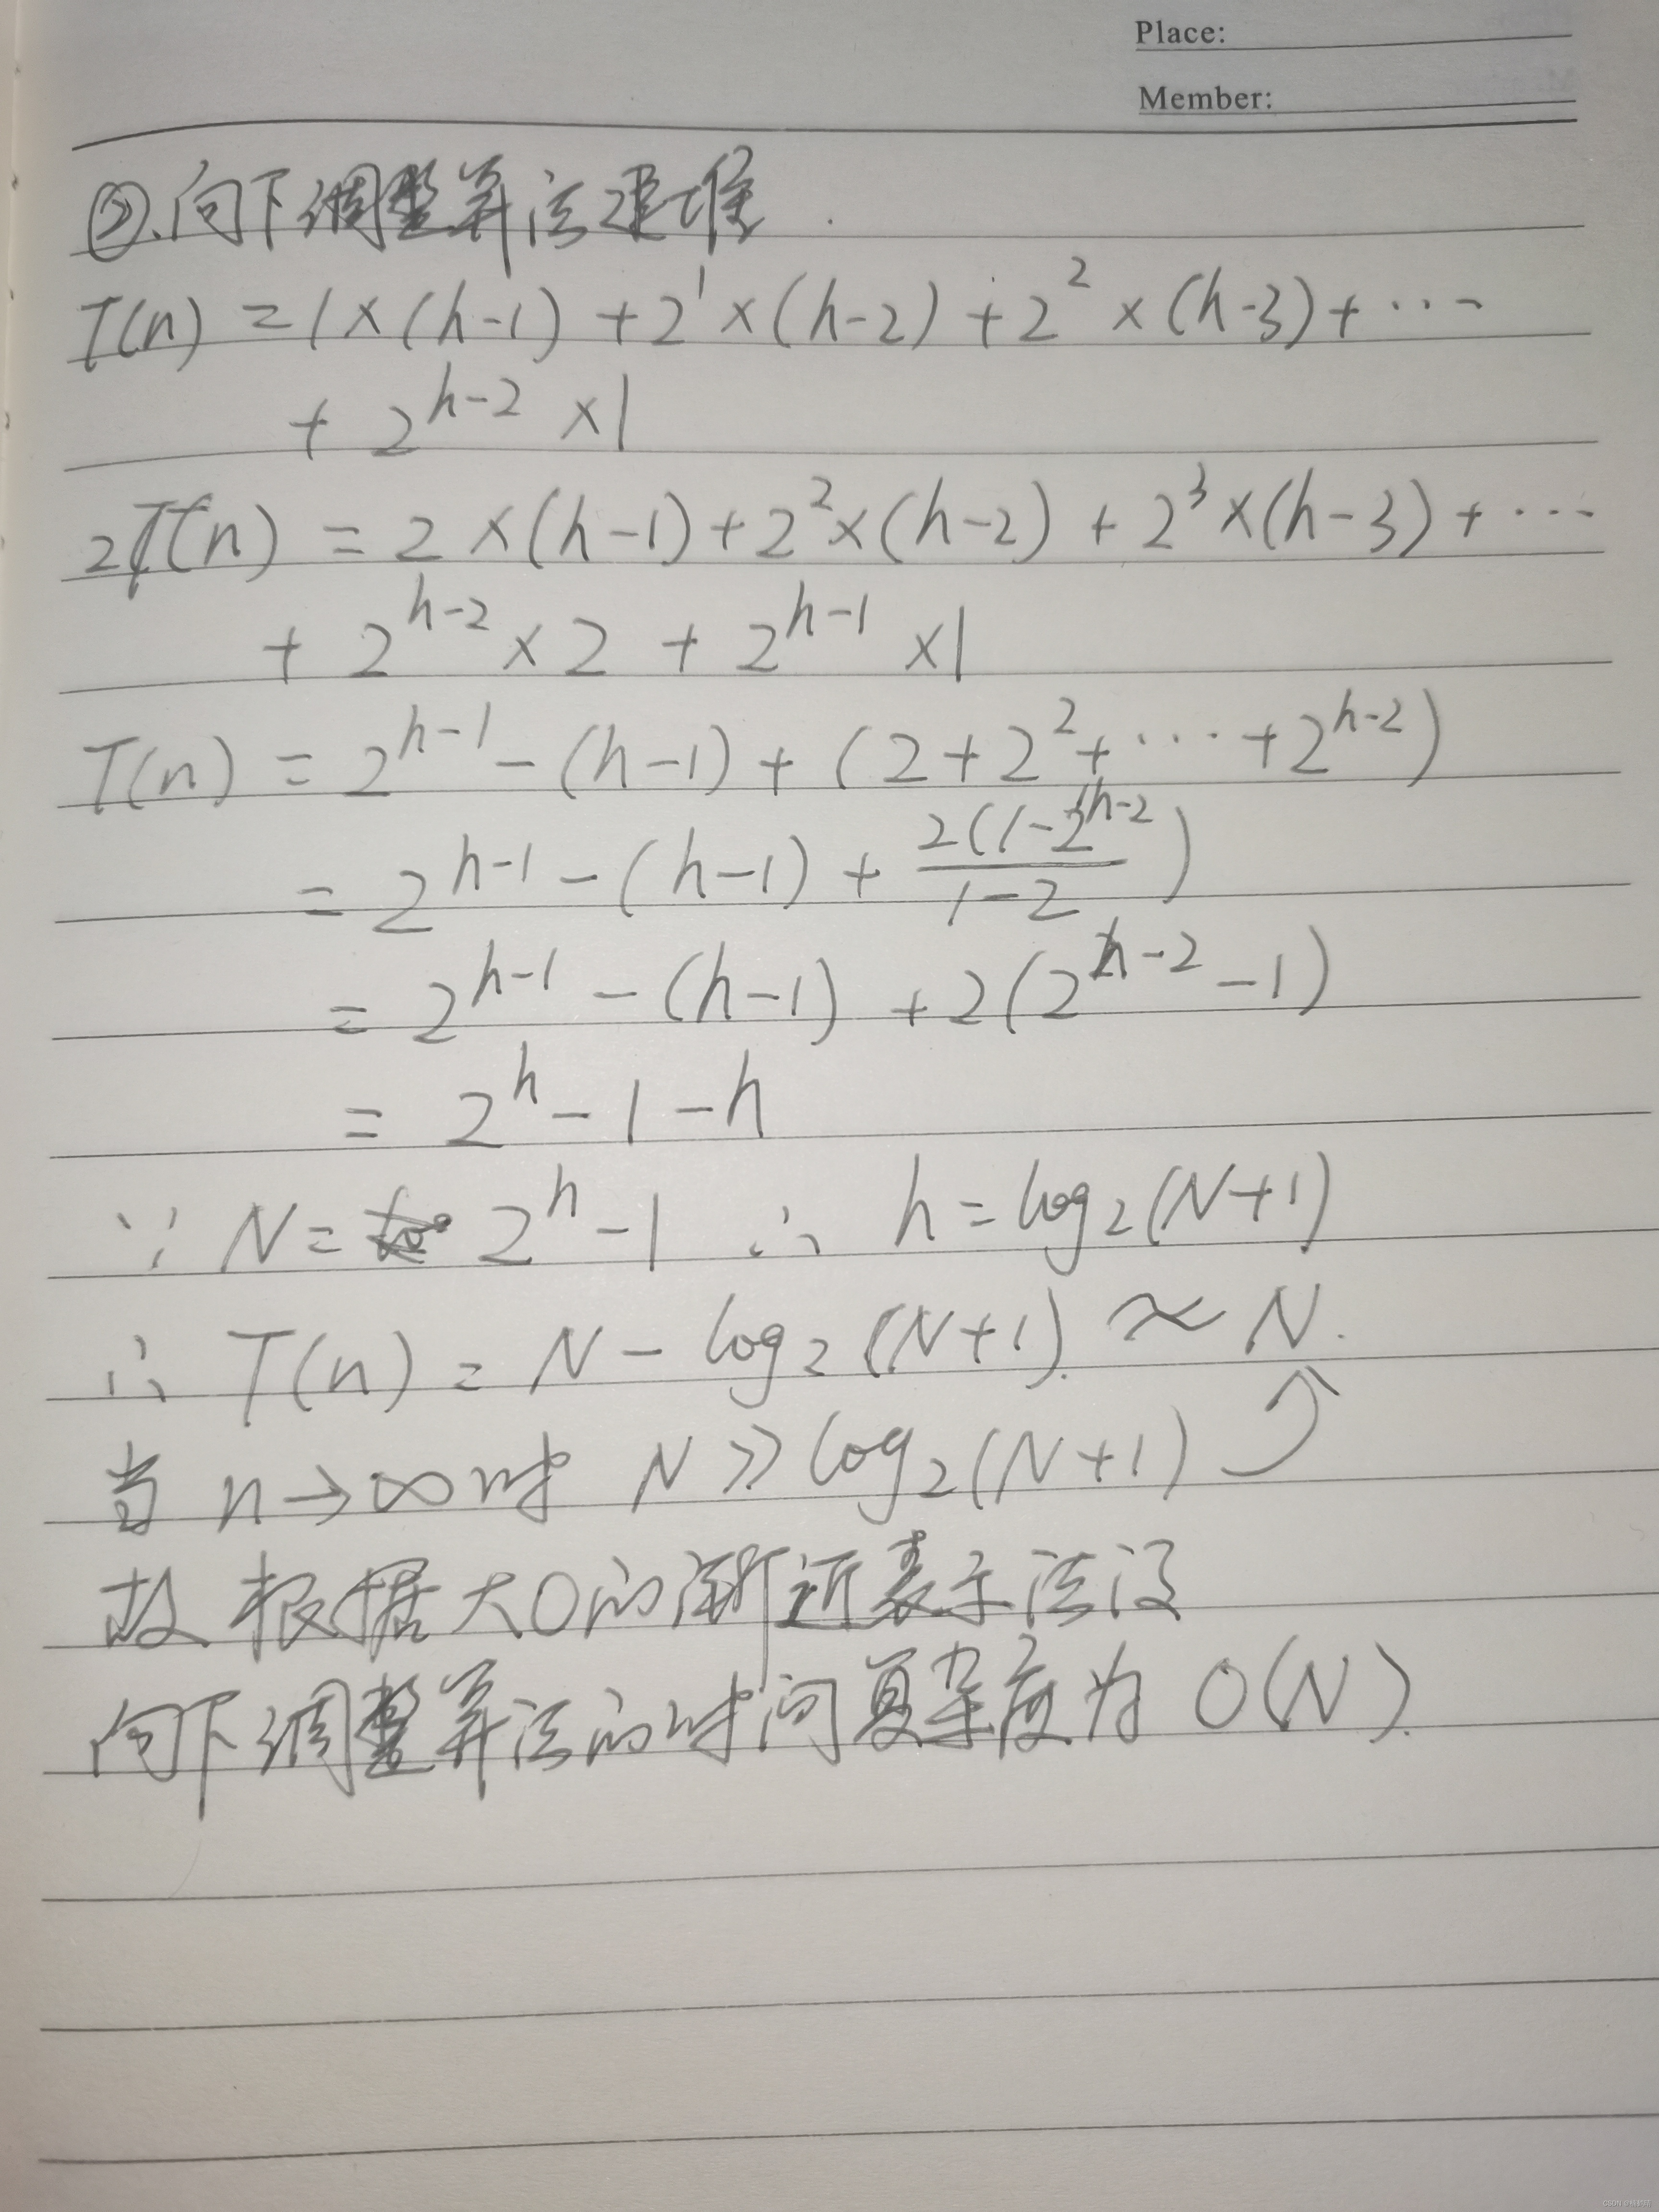 Place:
Member:
②.向下调整算法建堆.
T(n) = 1×(h-1) + 2¹×(h-2) + 2²×(h-3) + ⋯
+ 2^(h-2) ×1
2T(n) = 2×(h-1) + 2²×(h-2) + 2³×(h-3) + ⋯
+ 2^(h-2) × 2 + 2^(h-1) ×1
T(n) = 2^(h-1) - (h-1) + (2+2²+⋯+2^(h-2))
= 2^(h-1) - (h-1) + 2(1-2^(h-2))/(1-2) )
= 2^(h-1) - (h-1) + 2(2^(h-2) -1)
= 2^h -1 -h
∵ N = 2^h -1 ∴ h = log₂(N+1)
∴ T(n) = N - log₂(N+1) ≈ N.
当 n→∞时 N >> log₂(N+1)
故 根据大O的渐近表示法
向下调整算法的时间复杂度为 O(N).